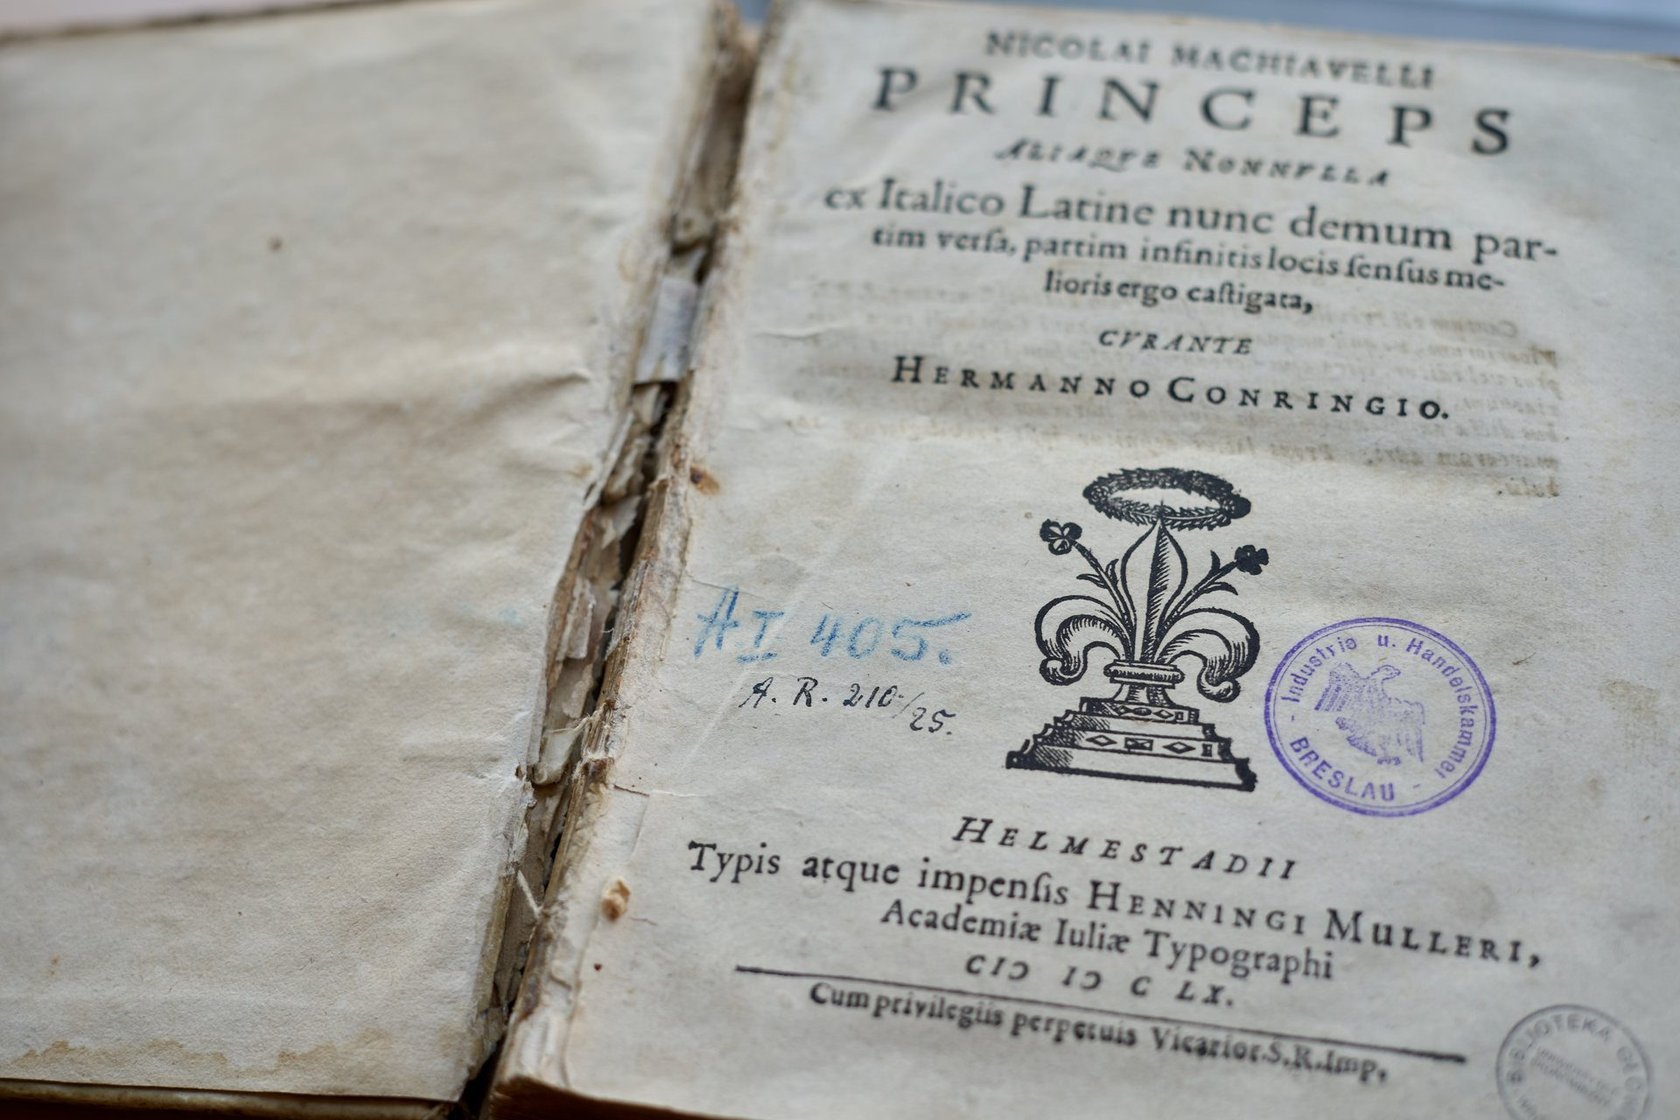 NICOLAI MACHIAVELLI
PRINCEPS
ALIAQVE NONNVLLA
ex Italico Latine nunc demum par-
tim verſa, partim infinitis locis ſenſus me-
lioris ergo caſtigata,
CVRANTE
HERMANNO CONRINGIO.
A I 405.
A. R. 210/25.
- Industrie u. Handelskammer -
BRESLAU
HELMESTADII
Typis atque impenſis HENNINGI MULLERI,
Academiæ Iuliæ Typographi
CIↃ IↃ C LX.
Cum privilegiis perpetuis Vicarior. S. R. Imp.
BIBLIOTEKA